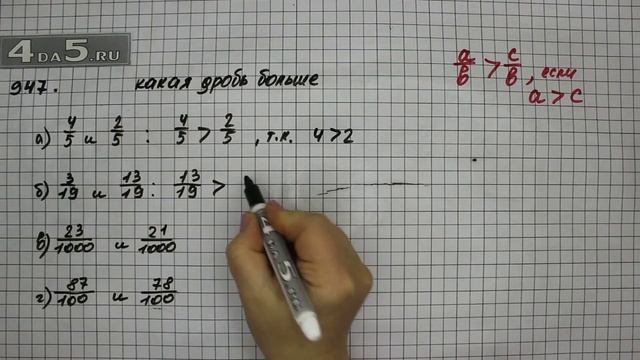 4DA5.RU
947. какая дробь больше
a/b > c/b, если
a > c
а) 4/5 и 2/5 : 4/5 > 2/5, т.к. 4>2
б) 3/19 и 13/19 : 13/19 >
в) 23/1000 и 21/1000
г) 87/100 и 78/100